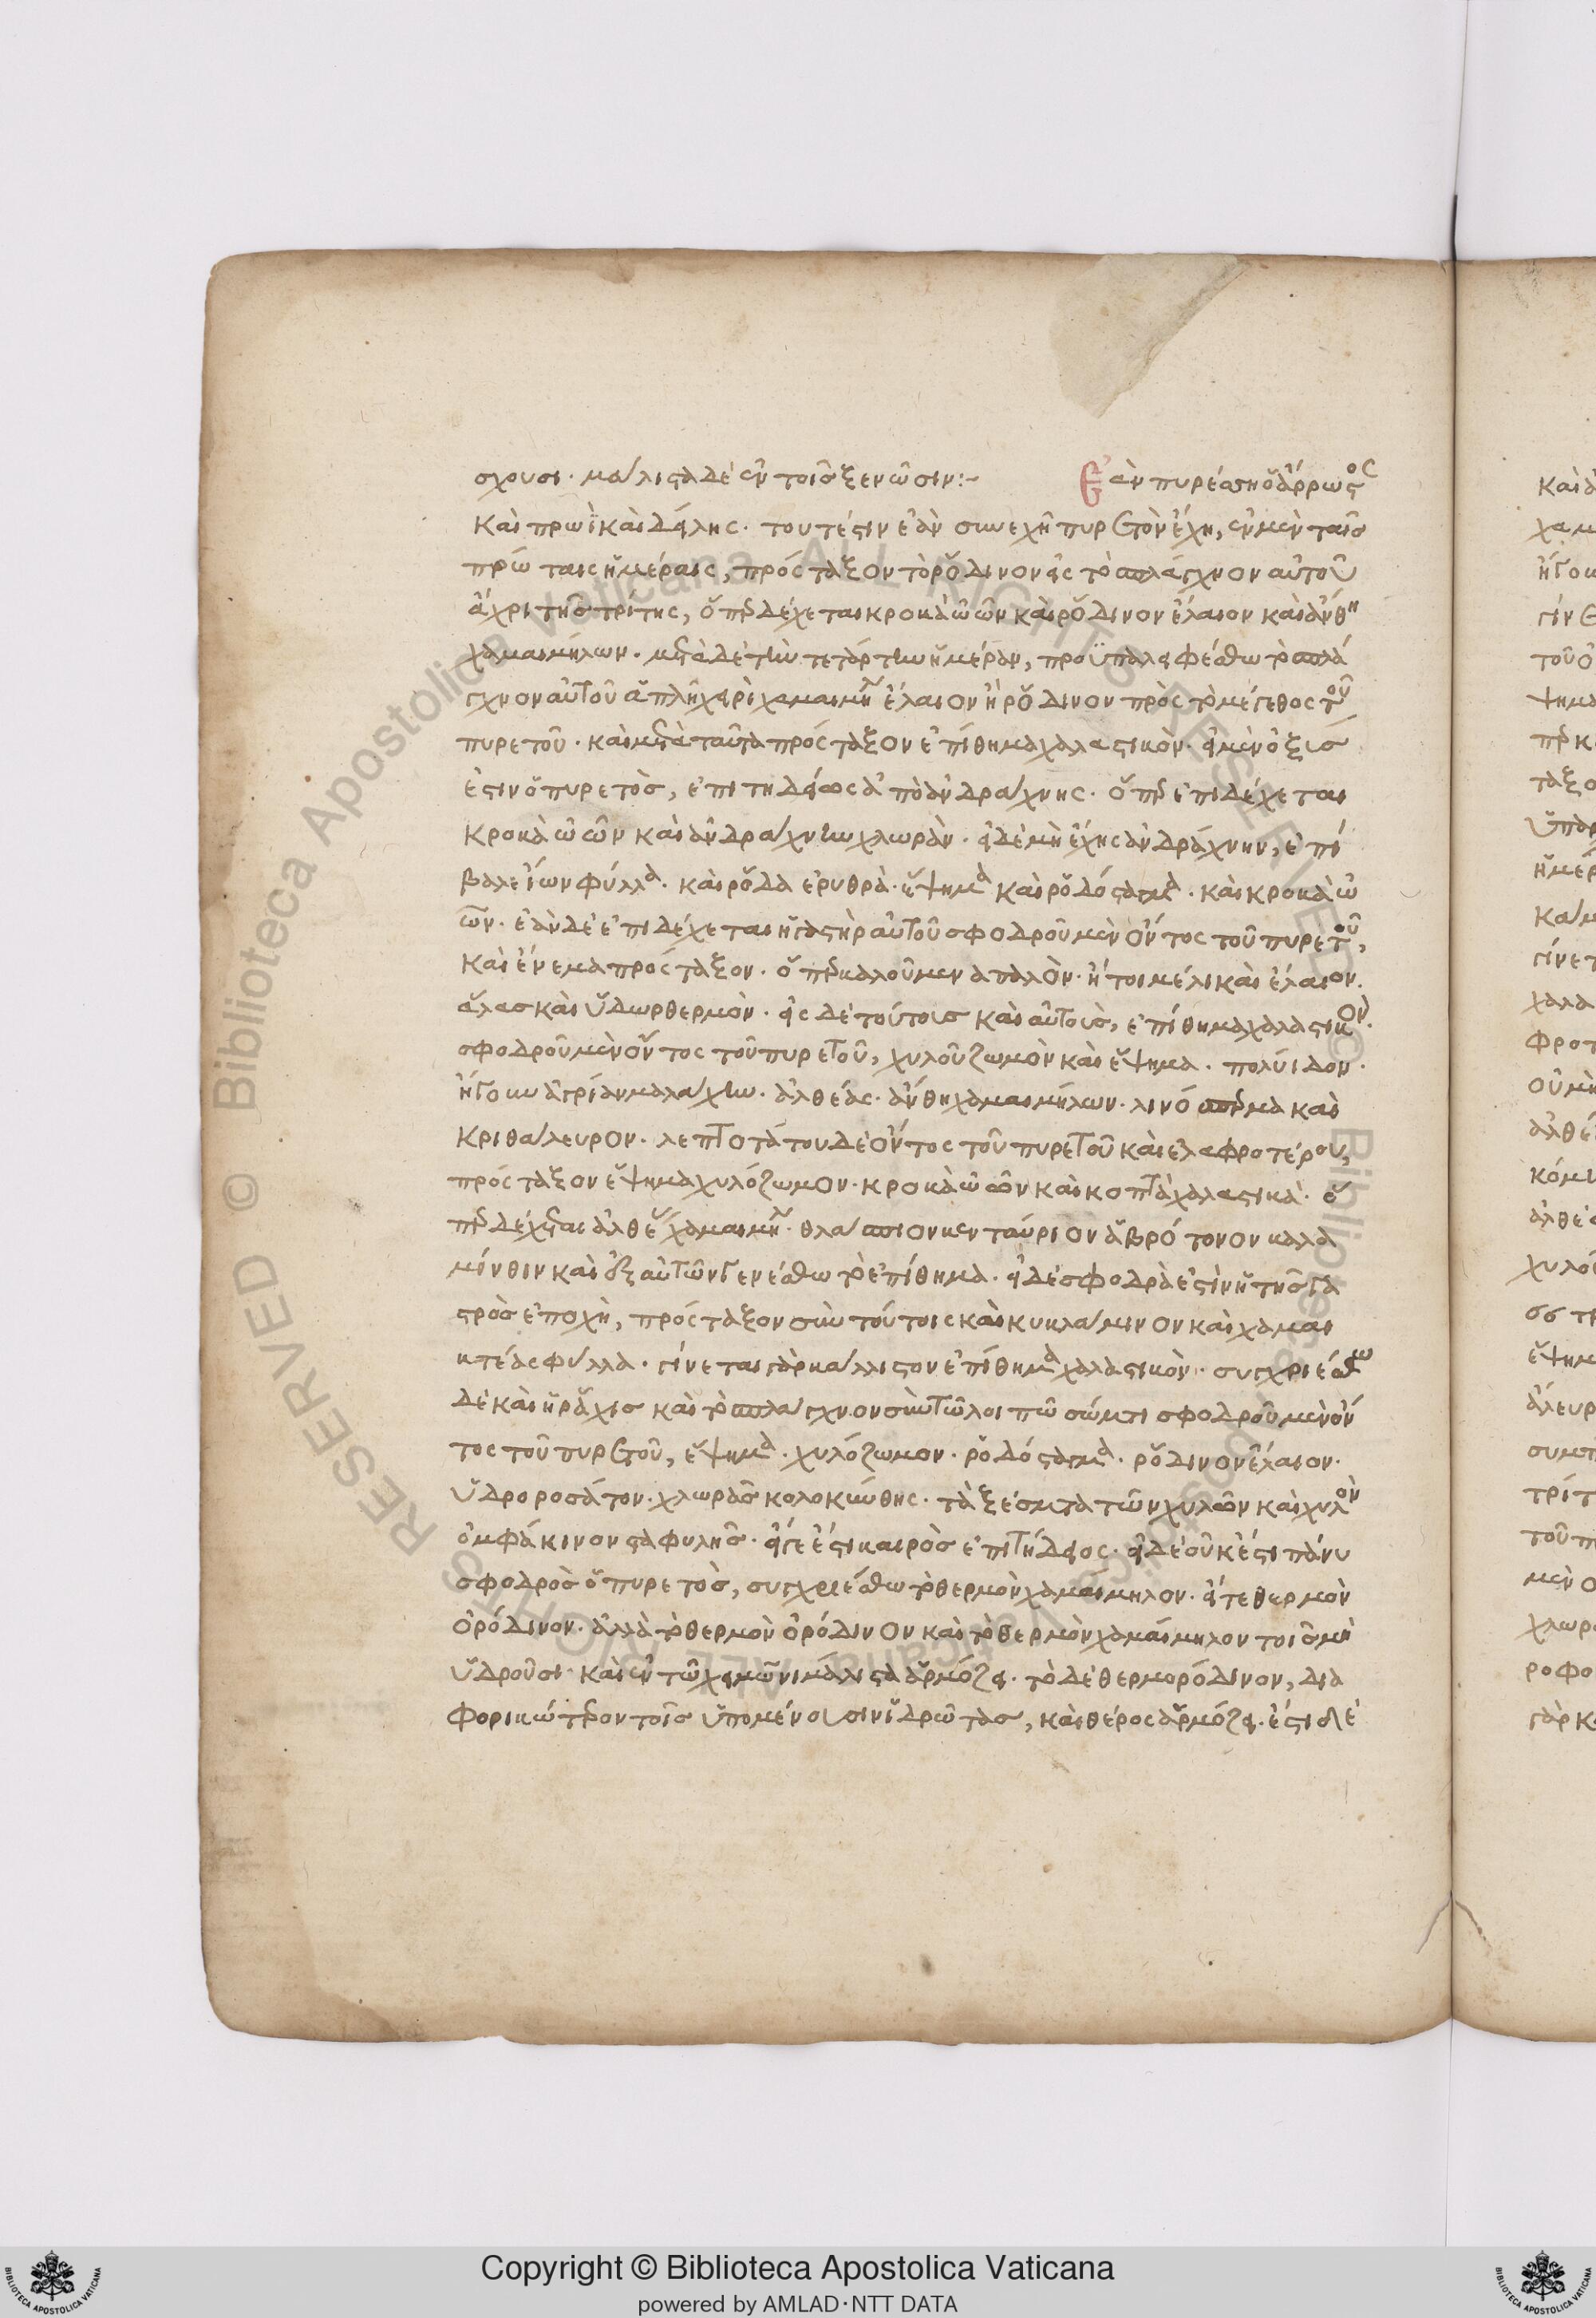 σχουσι· μάλιστα δὲ ἐν τοῖς ξενῶσιν:- Ἐὰν πυρέσση ὁ ἄρρωστος
καὶ πρωῒ καὶ δείλης· τουτέστιν ἐὰν συνεχῆ πυρετὸν ἔχη, ἐν μὲν ταῖς
πρώταις ἡμέραις, πρόσταξον τὸ ῥόδινον εἰς τὸ σπλάγχνον αὐτοῦ
ἄχρι τῆς τρίτης, ὅπερ δέχεται κροκὰ ὠῶν καὶ ῥόδινον ἔλαιον καὶ ἄνθη
χαμαιμήλων· μετὰ δὲ τὴν τετάρτην ἡμέραν, προϋπαλειφέσθω τὸ σπλά
γχνον αὐτοῦ ἁπλῆ χειρὶ χαμαιμήλ ἔλαιον ἢ ῥόδινον πρὸς τὸ μέγεθος τοῦ
πυρετοῦ· καὶ μετὰ ταῦτα πρόσταξον ἐπίθημα χαλαστικόν· εἰ μὲν ὀξὺς
ἐστιν ὁ πυρετὸς, ἐπιτηδείως ἀπὸ ἀνδράχνης· ὅπερ ἐπιδέχεται
κροκὰ ὠῶν καὶ ἀνδράχνην χλωράν· εἰ δὲ μὴ ἔχης ἀνδράχνην, ἐπί
βαλε ἴων φύλλα· καὶ ῥόδα ἐρυθρά· ἕψημα καὶ ῥοδόσταγμα· καὶ κροκὰ ὠ
ῶν· ἐὰν δὲ ἐπιδέχεται ἡ γαστὴρ αὐτοῦ σφοδροῦ μὲν ὄντος τοῦ πυρετοῦ,
καὶ ἔνεμα πρόσταξον· ὅπερ καλοῦμεν ἁπαλὸν· ἤτοι μέλι καὶ ἔλαιον·
ἅλας καὶ ὕδωρ θερμὸν· εἰς δὲ τούτοις καὶ αὐτοῖς, ἐπίθημα χαλαστικὸν·
σφοδροῦ μὲν ὄντος τοῦ πυρετοῦ, χυλοῦ ζωμὸν καὶ ἕψημα· πολύιδον·
ἤγουν ἀγρίαν μαλάχην· ἀλθέας· ἄνθη χαμαιμήλων· λινόσπερμα καὶ
κριθάλευρον· λεπτοτάτου δὲ ὄντος τοῦ πυρετοῦ καὶ ἐλαφροτέρου,
πρόσταξον ἕψημα χυλόζωμον· κροκὰ ὠῶν καὶ κοπτὰ χαλαστικὰ· ὅ
περ δέχεται ἀλθέ χαμαιμήλ· θλάσπιον κενταύριον ἁβρότονον καλα
μίνθιν καὶ ἐξ αὐτῶν γενέσθω τὸ ἐπίθημα· εἰ δὲ σφοδρὰ ἐστὶν ἡ τῆς γα
στρὸς ἐποχὴ, πρόσταξον σὺν τούτοις καὶ κυκλάμινον καὶ χαμαι
κτέας φύλλα· γίνεται γὰρ κάλλιστον ἐπίθημα χαλαστικὸν· συγχριέσθω
δὲ καὶ ἡ ῥάχις καὶ τὸ σπλάγχνον σὺν τῶ λοιπῶ σώματι σφοδροῦ μὲν ὄν
τος τοῦ πυρετοῦ, ἕψημα· χυλόζωμον· ῥοδόσταγμα· ῥόδινον ἔλαιον·
ὑδροροσάτον· χλωρᾶς κολοκύνθης· τὰ ξέσματα τῶν χυλῶν καὶ χυλὸν
ὀμφάκινον σταφυλῆς· εἴγε ἐστι καιρὸς ἐπιτήδειος· εἰ δὲ οὔκ ἐστι πάνυ
σφοδρὸς ὁ πυρετὸς, συγχριέσθω τὸ θερμὸν χαμαίμηλον· εἴτε θερμὸν
ὀρόδινον· ἀλλὰ τὸ θερμὸν ὀρόδινον καὶ τὸ θερμὸν χαμαίμηλον τοῖς μὴ
ὑδροῦσι· καὶ ἐν τῶ χειμῶνι μάλιστα ἁρμόζει· τὸ δὲ θερμορόδινον, δια
φορικώτερον τοῖς ὑπομένουσιν ἱδρῶτας, καὶ θέρος ἁρμόζει· ἔστι δὲ
Copyright © Biblioteca Apostolica Vaticana
powered by AMLAD·NTT DATA